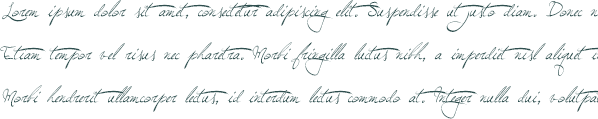 Lorem ipsum dolor sit amet, consectetur adipiscing elit. Suspendisse ut justo diam. Donec n
Etiam tempor vel risus nec pharetra. Morbi fringilla luctus nibh, a imperdiet nisl aliquet i
Morbi hendrerit ullamcorper lectus, id interdum lectus commodo at. Integer nulla dui, volutpa